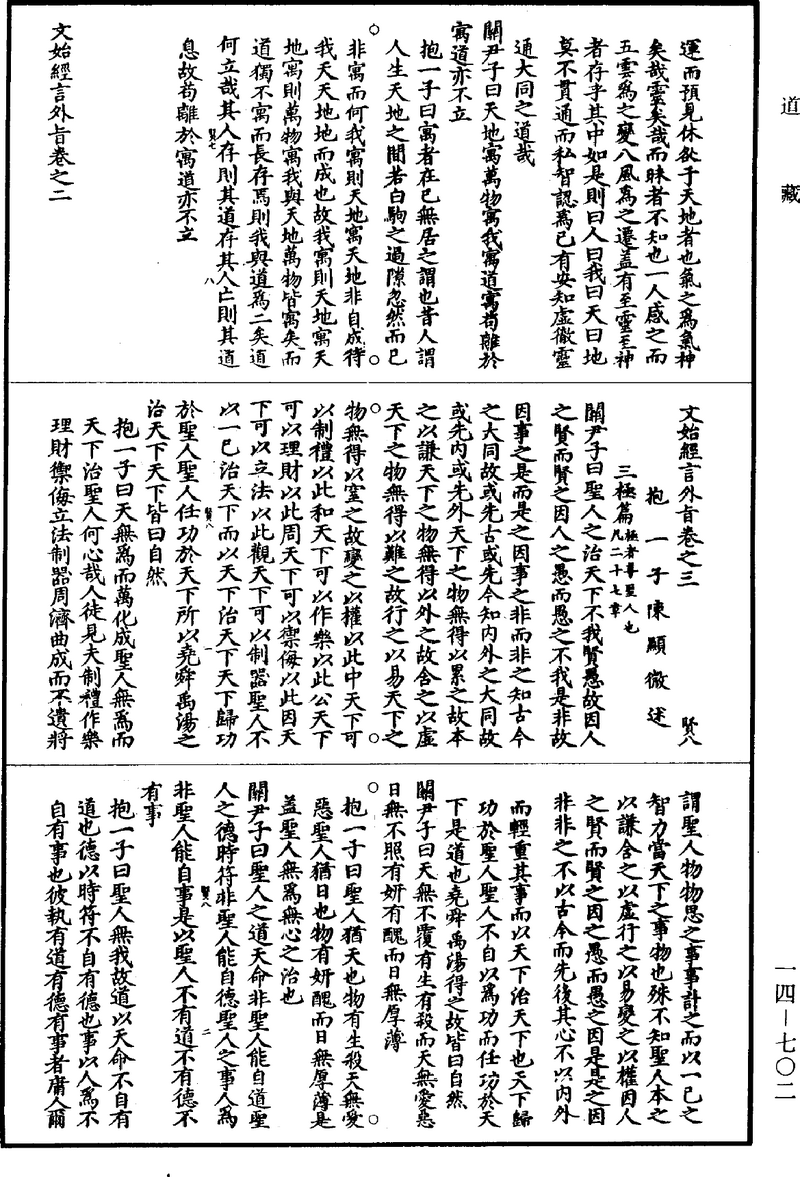 道藏
運而預見休咎于天地者也氣之為氣神
矣哉靈矣哉而昧者不知也一人感之而
五雲為之變八風為之遷蓋有至靈至神
者存乎其中如是則曰人曰我曰天曰地
莫不貫通而私智認為己有安知虛徹靈
通大同之道哉
關尹子曰天地寓萬物寓我寓道寓苟離於
寓道亦不立
抱一子曰寓者在己無居之謂也昔人謂
人生天地之間若白駒之過隙忽然而已
非寓而何我寓則天地寓天地非自成待
我天天地地而成也故我寓則天地寓天
地寓則萬物寓我與天地萬物皆寓矣而
道獨不寓而長存焉則我與道為二矣道
何立哉其人存則其道存其人亡則其道
息故苟離於寓道亦不立
賢七
八
文始經言外旨卷之二
文始經言外旨卷之三
賢八
抱一子陳顯微述
三極篇極者尊聖人也
凡二十七章
關尹子曰聖人之治天下不我賢愚故因人
之賢而賢之因人之愚而愚之不我是非故
因事之是而是之因事之非而非之知古今
之大同故或先古或先今知內外之大同故
或先內或先外天下之物無得以累之故本
之以謙天下之物無得以外之故含之以虛
天下之物無得以難之故行之以易天下之
物無得以窒之故變之以權以此中天下可
以制禮以此和天下可以作樂以此公天下
可以理財以此周天下可以禦侮以此因天
下可以立法以此觀天下可以制器聖人不
以一己治天下而以天下治天下天下歸功
於聖人聖人任功於天下所以堯舜禹湯之
賢八
一
治天下天下皆曰自然
抱一子曰天無為而萬化成聖人無為而
天下治聖人何心哉人徒見夫制禮作樂
理財禦侮立法制器周濟曲成而不遺將
謂聖人物物思之事事計之而以一己之
智力當天下之事物也殊不知聖人本之
以謙含之以虛行之以易變之以權因人
之賢而賢之因之愚而愚之因是是之因
非非之不以古今而先後其心不以內外
而輕重其事而以天下治天下也天下歸
功於聖人聖人不自以為功而任功於天
下是道也堯舜禹湯得之故皆曰自然
關尹子曰天無不覆有生有殺而天無愛惡
日無不照有妍有醜而日無厚薄
抱一子曰聖人猶天也物有生殺天無愛
惡聖人猶日也物有妍醜而日無厚薄是
蓋聖人無為無心之治也
關尹子曰聖人之道天命非聖人能自道聖
人之德時符非聖人能自德聖人之事人為
非聖人能自事是以聖人不有道不有德不
賢八
二
有事
抱一子曰聖人無我故道以天命不自有
道也德以時符不自有德也事以人為不
自有事也彼執有道有德有事者庸人爾
一四—七〇二